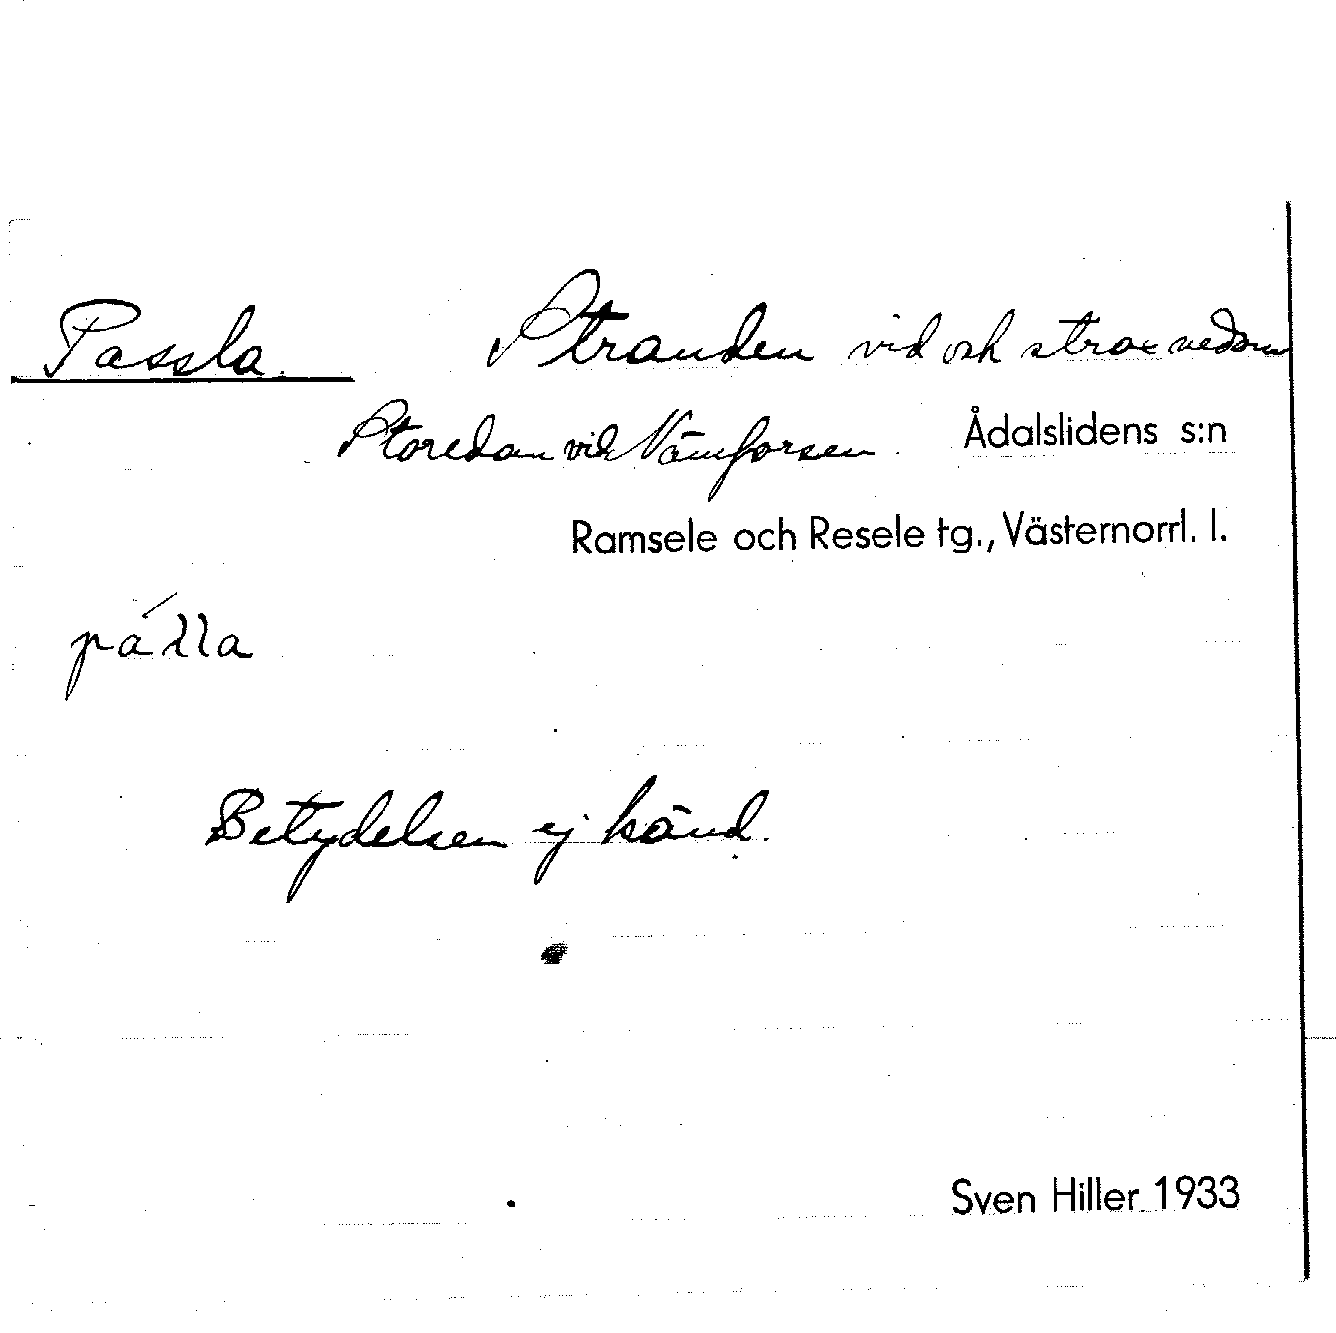 Passla. Stranden vid och strax nedom
Storedan vid Nämforsen. Ådalslidens s:n
Ramsele och Resele tg., Västernorrl. l.
Betydelsen ej känd.
Sven Hiller 1933